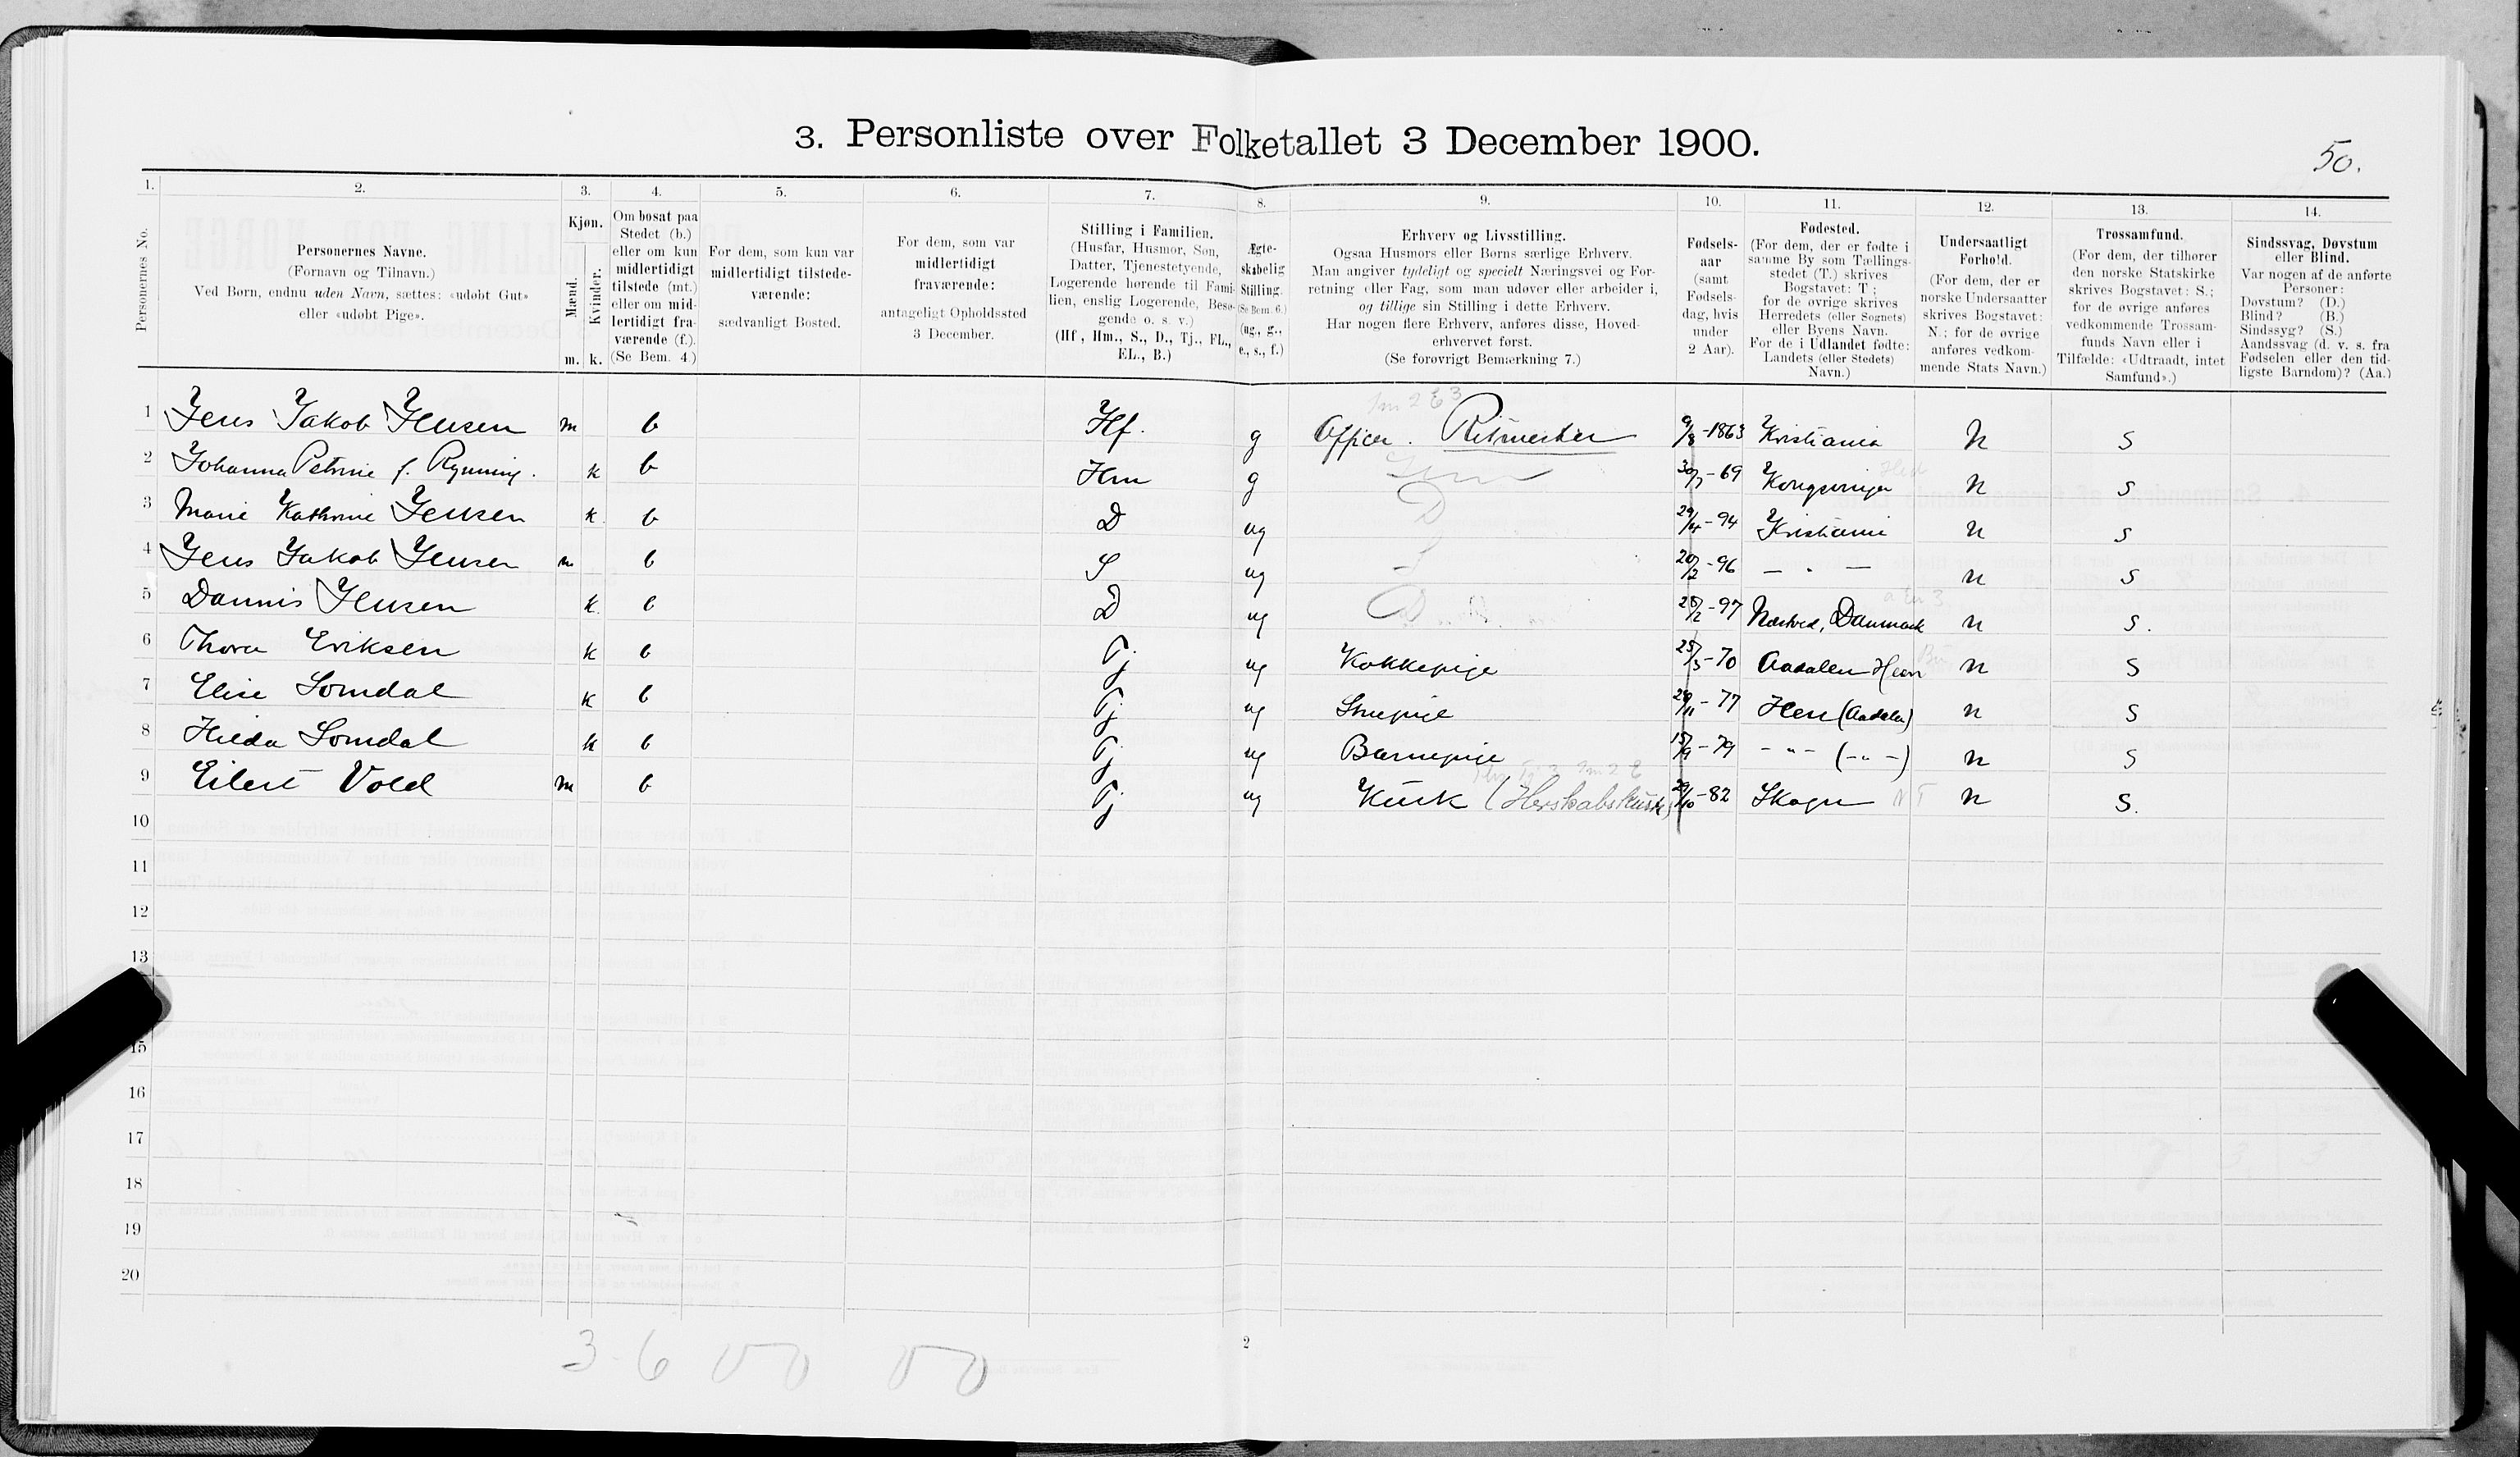 3. Personliste over Folketallet 3 December 1900.
50.
1. 2. 3. 4. 5. 6. 7. 8. 9. 10. 11. 12. 13. 14.
Personernes No.
Personernes Navne.
(Fornavn og Tilnavn.)
Ved Børn, endnu uden Navn, sættes: «udøbt Gut»
eller «udøbt Pige».
Kjøn.
Mænd.
Kvinder.
m. k.
Om bosat paa
Stedet (b.)
eller om kun
midlertidigt
tilstede (mt.)
eller om mid-
lertidigt fra-
værende (f.).
(Se Bem. 4.)
For dem, som kun var
midlertidigt tilstede-
værende:
sædvanligt Bosted.
For dem, som var
midlertidigt
fraværende:
antageligt Opholdssted
3 December.
Stilling i Familien.
(Husfar, Husmor, Søn,
Datter, Tjenestetyende,
Logerende hørende til Fami-
lien, enslig Logerende, Besø-
gende o. s. v.)
(Hf., Hm., S., D., Tj., FL.,
EL., B.)
Ægte-
skabelig
Stilling.
(Se Bem. 6.)
(ug., g.,
e., s., f.)
Erhverv og Livsstilling.
Ogsaa Husmors eller Børns særlige Erhverv.
Man angiver tydeligt og specielt Næringsvei og For-
retning eller Fag, som man udøver eller arbeider i,
og tillige sin Stilling i dette Erhverv.
Har nogen flere Erhverv, anføres disse, Hoved-
erhvervet først.
(Se forøvrigt Bemærkning 7.)
Fødsels-
aar
(samt
Fødsels-
dag, hvis
under
2 Aar).
Fødested.
(For dem, der er fødte i
samme By som Tællings-
stedet (T.) skrives
Bogstavet: T;
for de øvrige skrives
Herredets (eller Sognets)
eller Byens Navn.
For de i Udlandet fødte:
Landets (eller Stedets)
Navn.)
Undersaatligt
Forhold.
(For dem, der er
norske Undersaatter
skrives Bogstavet:
N.; for de øvrige
anføres vedkom-
mende Stats Navn.)
Trossamfund.
(For dem, der tilhører
den norske Statskirke
skrives Bogstavet: S.;
for de øvrige anføres
vedkommende Trossam-
funds Navn eller i
Tilfælde: «Udtraadt, intet
Samfund».)
Sindssvag, Døvstum
eller Blind.
Var nogen af de anførte
Personer:
Døvstum? (D.)
Blind? (B.)
Sindssyg? (S.)
Aandssvag (d. v. s. fra
Fødselen eller den tid-
ligste Barndom)? (Aa.)
1 Jens Jakob Jensen m b Hf. g Officer. Ritmester 9/8-1863 Kristiania N S
2 Johanna Petrine f. Rynning. k b Hm g 30/7-69 Kongsvinger N S
3 Marie Kathrine Jensen k. b D ug D 29/4-94 Kristiania N S
4 Jens Jakob Jensen m b S ug S 20/2-96 - " - N S
5 Dannis Jensen k. b D ug D 28/2-97 Næstved, Danmark N S.
6 Thora Eriksen k b Tj ug Kokkepige 25/3-70 Aadalen Heen N S
7 Elise Somdal k b Tj ug Stuepige 29/11-77 Hen (Aadalen) N S
8 Hilda Somdal k b Tj ug Barnepige 15/9-79 - " - (- " -) N S
9 Eilert Vold m b Tj ug Kusk (Herskabskusk) 29/10-82 Skogn N T N S.
10
11
12
13
15
16
17
18
19
20
3 6
2